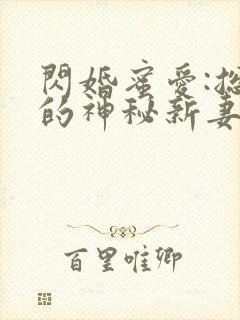 閃婚蜜愛:總
的神秘新妻
百里唯卿